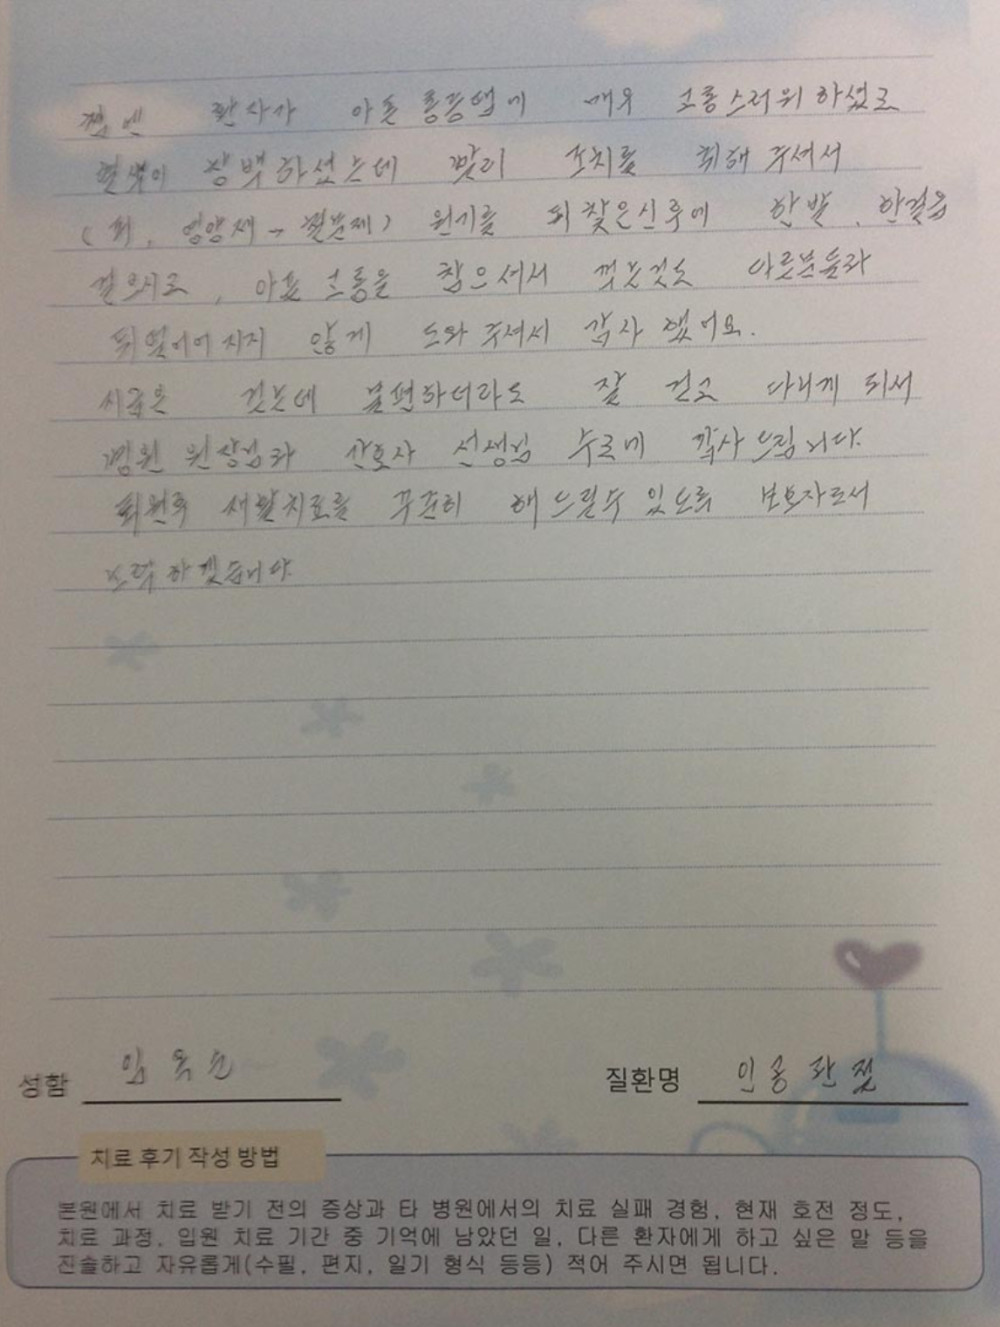 첨엔 환자가 아픈 통증땜에 매우 고통스러워 하셨고
혈색이 창백하셨는데 빨리 조치를 취해 주셔서
(피, 영양제, 철분제) 원기를 되찾은신후에 한발, 한걸음
걸으시고, 아픈 고통을 참으셔서 꺽는것도 다른분들과
뒤떨어지지 않게 도와 주셔서 감사 했어요.
지금은 걷는데 불편하더라도 잘 걷고 다니게 되서
병원 원장님과 간호사 선생님 두루에 감사드립니다.
퇴원후 재활치료를 꾸준히 해 드릴수 있도록 보호자로서
노력 하겠습니다.
성함 임옥순 질환명 인공관절
치료 후기 작성 방법
본원에서 치료 받기 전의 증상과 타 병원에서의 치료 실패 경험, 현재 호전 정도,
치료 과정, 입원 치료 기간 중 기억에 남았던 일, 다른 환자에게 하고 싶은 말 등을
진솔하고 자유롭게(수필, 편지, 일기 형식 등등) 적어 주시면 됩니다.